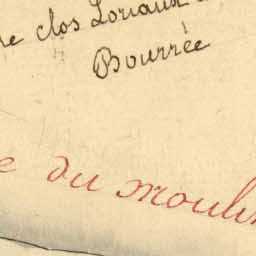 clos Loriaux
Bourrée
du moulin